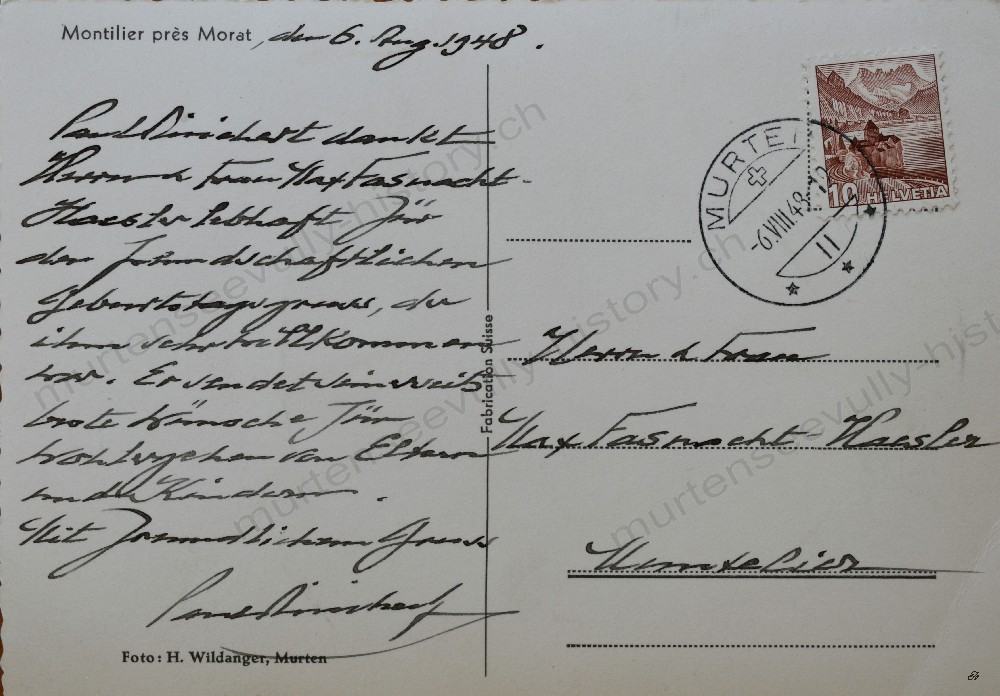 Montilier près Morat, den 6. Aug. 1948.
Paul Dinichert dankt
Herrn & Frau Max Fasnacht-
Haesler lebhaft für
den freundschaftlichen
Geburtstagsgruss, der
ihm sehr willkommen
war. Er sendet seinerseits
beste Wünsche für
Wohlergehen von Eltern
und Kindern.
Mit freundlichem Gruss
Paul Dinichert
Foto: H. Wildanger, Murten
Fabrication Suisse
MURTEN
-6.VIII.48
II
10 HELVETIA
Herrn & Frau
Max Fasnacht-Haesler
Muntelier
murtenseevully-history.ch
murtenseevully-history.ch
murtenseevully-history.ch